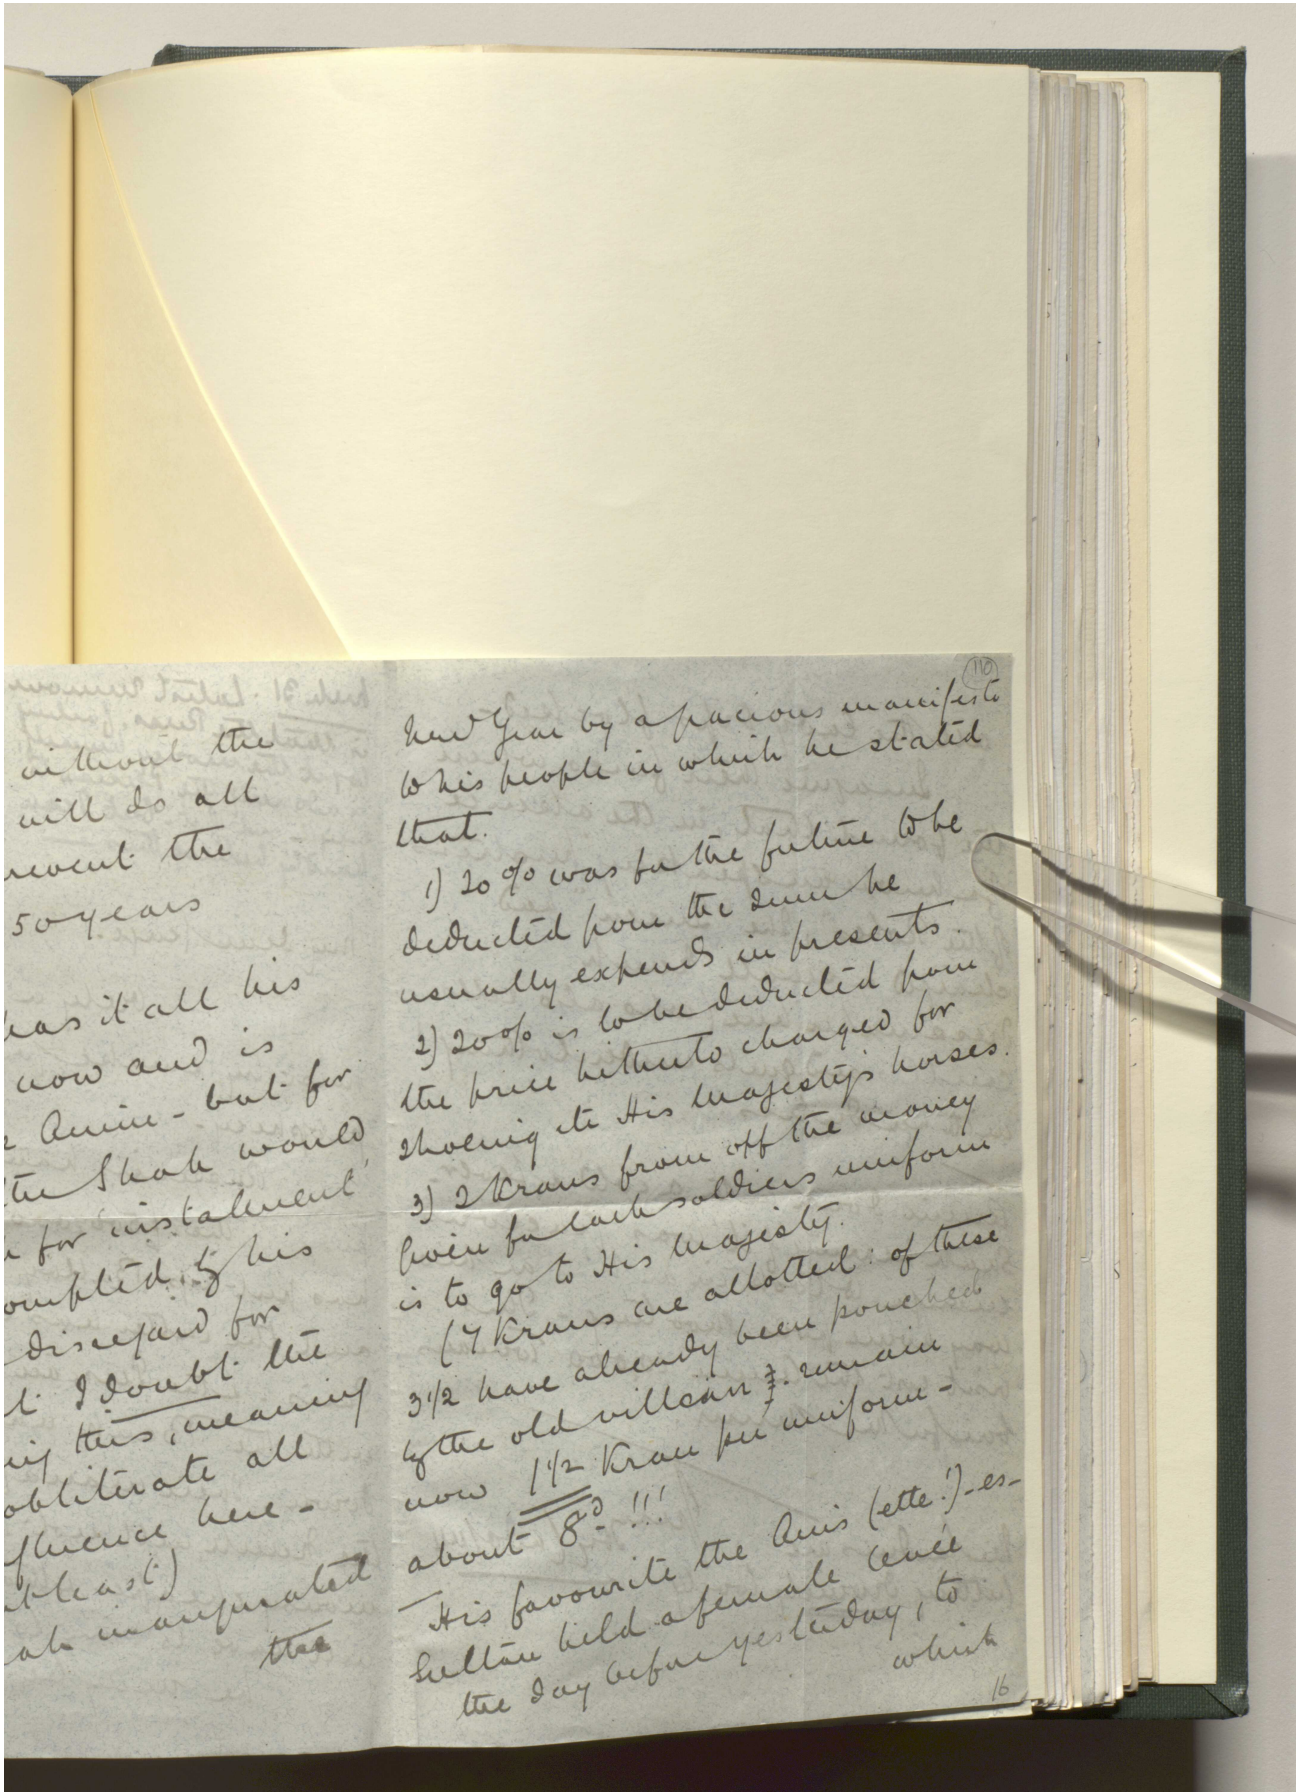 without the
will do all
revent the
50 years
has it all his
now and is
Amin - but for
the Shah would
for instalment
ompted, by his
disregard for
t. I doubt the
ing this, meaning
obliterate all
fluence here -
at least)
ah inaugurated
the
110
New Year by a pacious manifesto
to his people in which he stated
that.
1) 20 % was for the future to be
deducted from the sum he
usually expends in presents.
2) 20 % is to be deducted from
the price hitherto charged for
shoeing ite His Majesty's horses.
3) 2 Krans from off the money
given for each soldiers uniform
is to go to His Majesty.
(7 Krans are allotted: of these
3 1/2 have already been pouched
by the old villain & remain
now 1 1/2 Kran per uniform -
about 8d !!!
His favourite the Anis (ette!)-es-
Sultan held a female levée
the day before yesterday, to
which
16